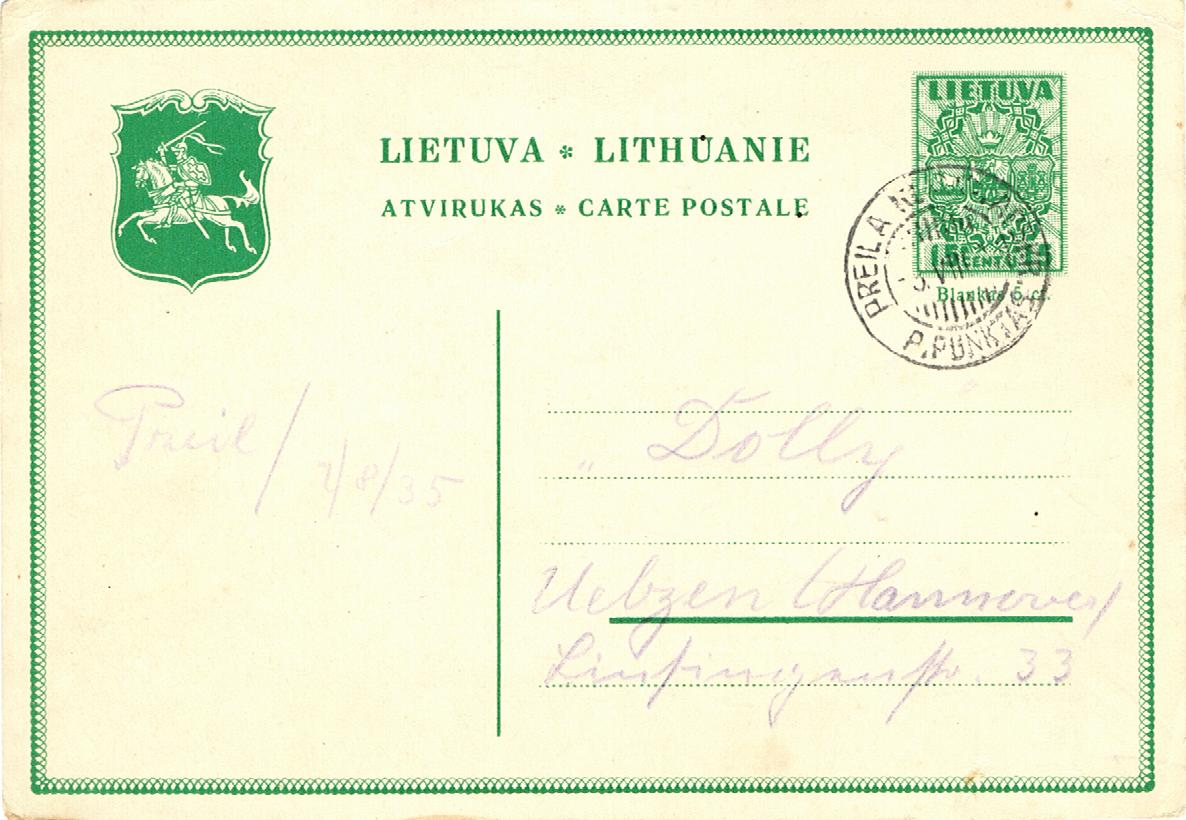 LIETUVA * LITHUANIE
ATVIRUKAS * CARTE POSTALE
LIETUVA
15 CENTŲ 15
Blankas 5 ct.
PREILA
VIII
P.PUNKTAS
Preil / 2/8/35
„ Dolly
Uelzen (Hannover)
Lintzingenstr. 33